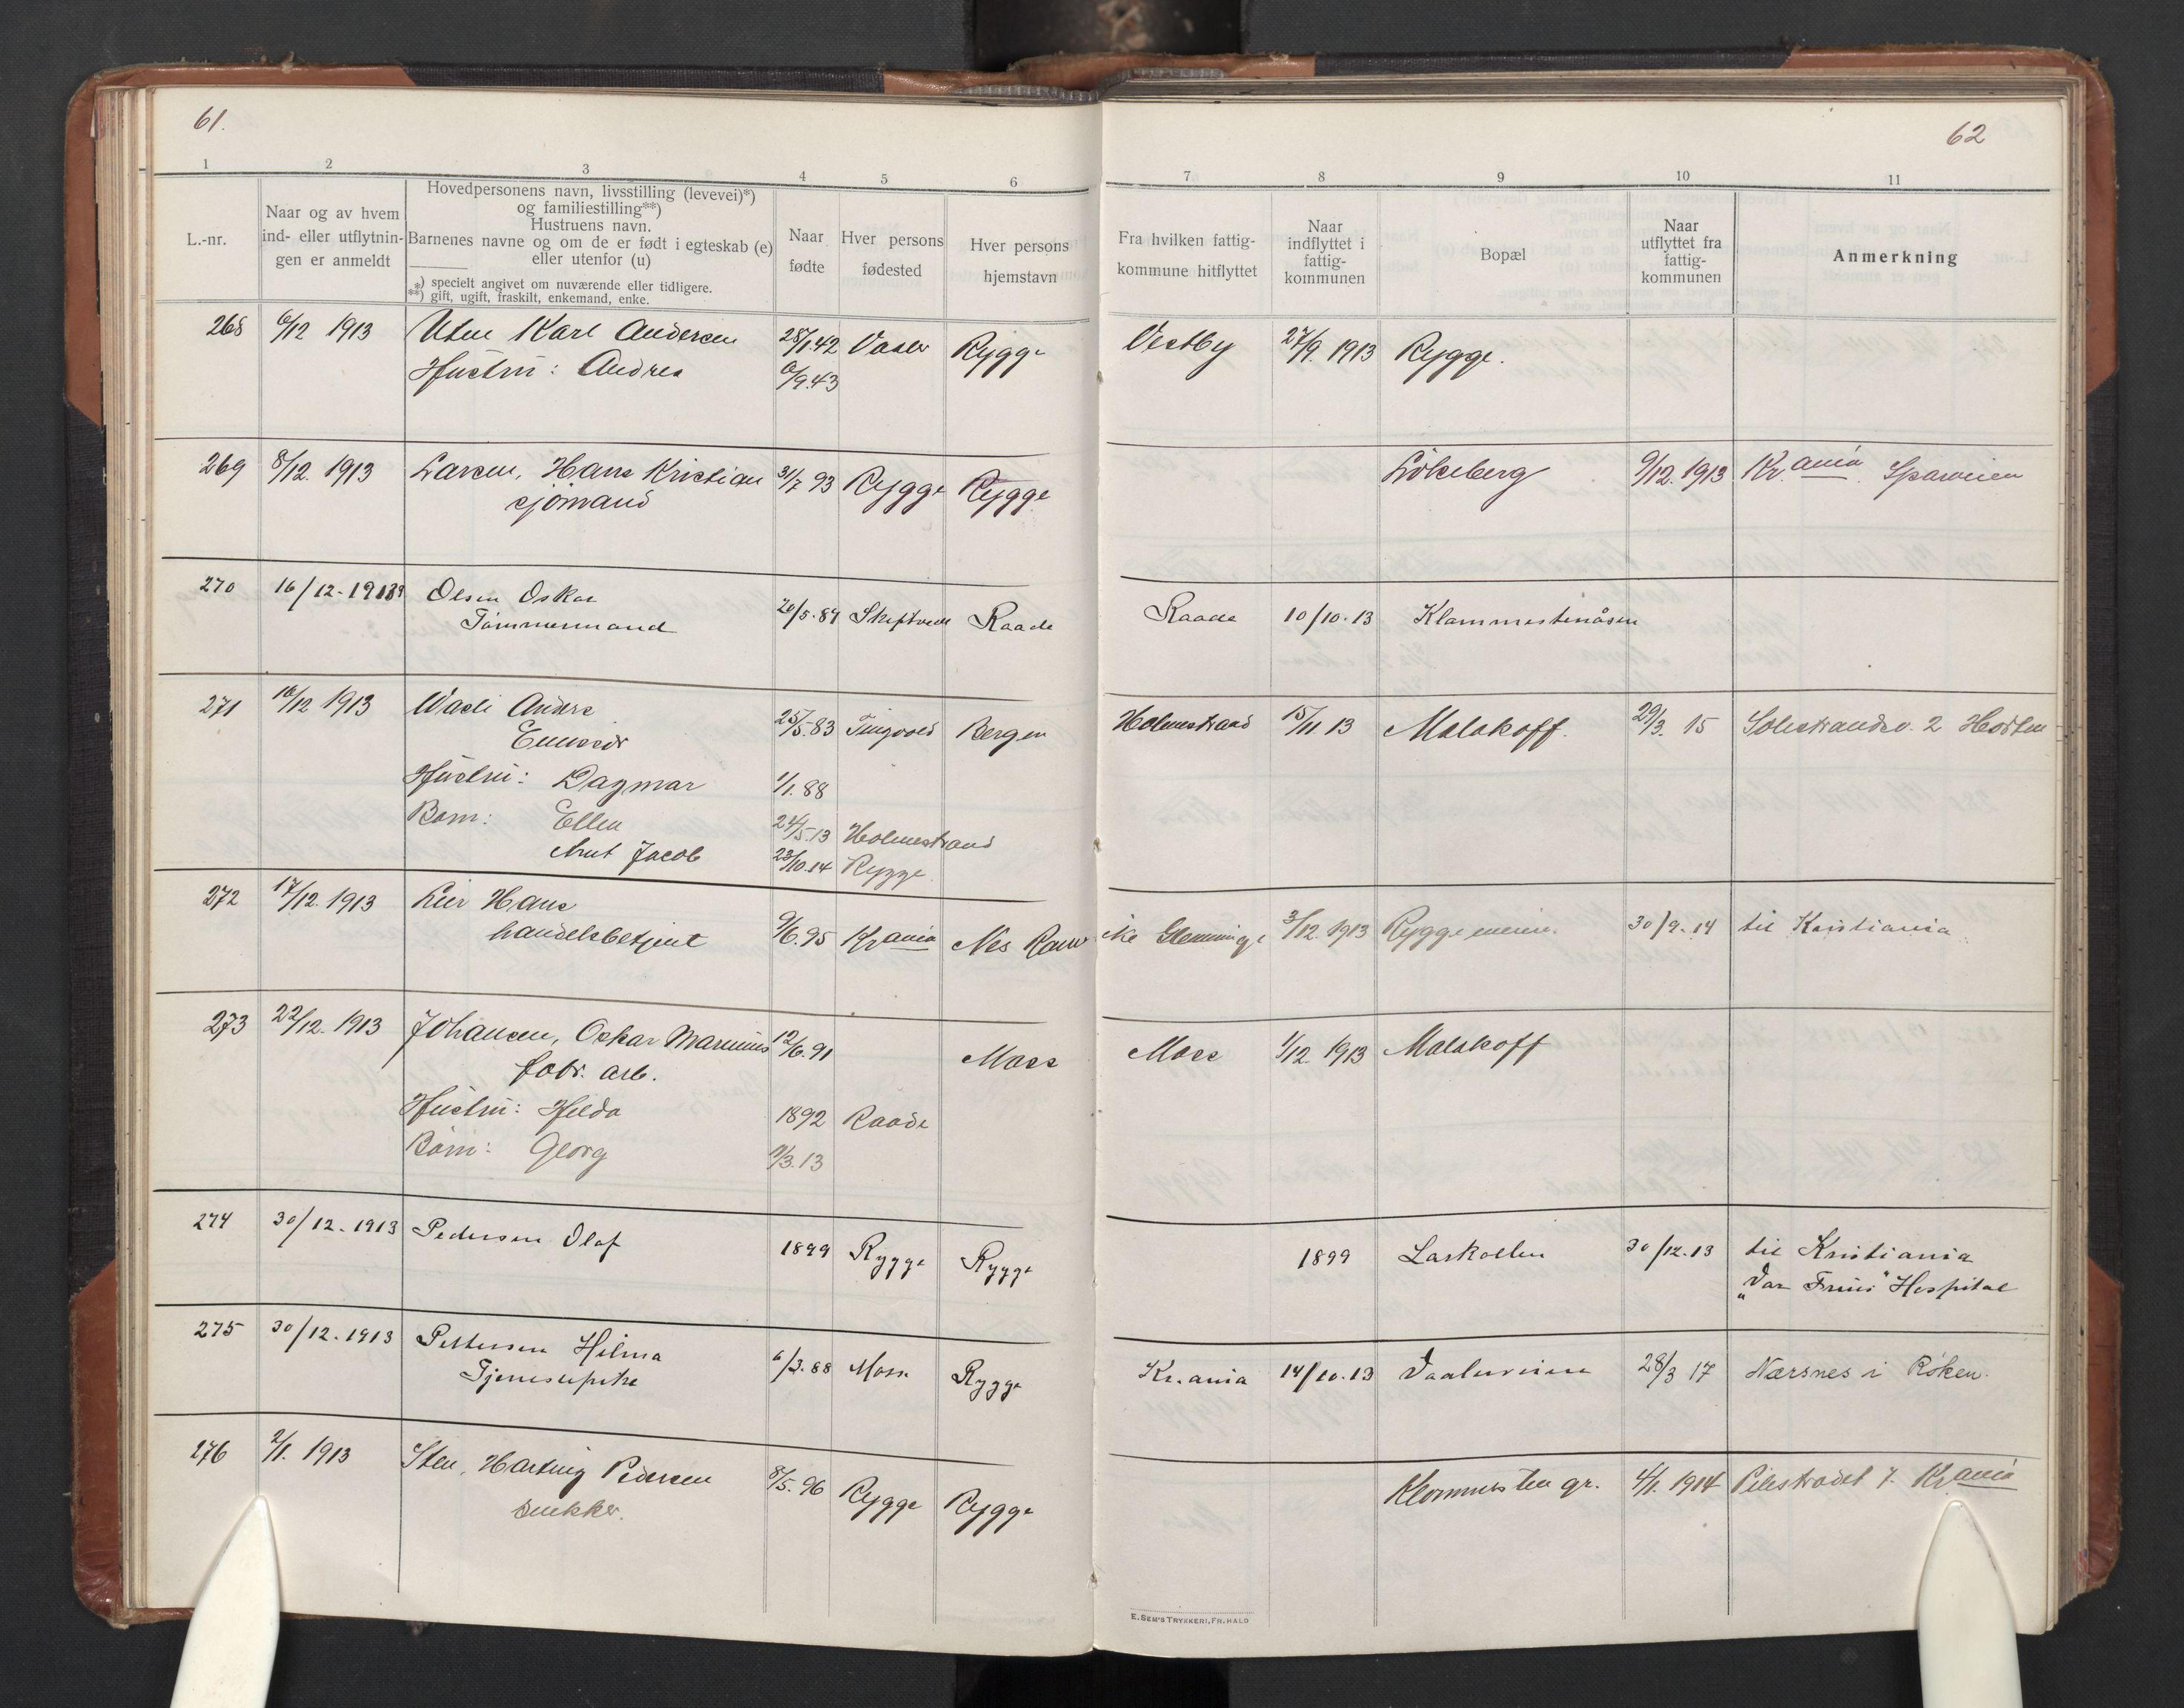 61.
62
1 2 3 4 5 6 7 8 9 10 11
L.-nr.
Naar og av hvem
ind- eller utflytnin-
gen er anmeldt
Hovedpersonens navn, livsstilling (levevei)*)
og familiestilling**)
Hustruens navn.
Barnenes navne og om de er født i egteskab (e)
eller utenfor (u)
*) specielt angivet om nuværende eller tidligere.
**) gift, ugift, fraskilt, enkemand, enke.
Naar
fødte
Hver persons
fødested
Hver persons
hjemstavn
Fra hvilken fattig-
kommune hitflyttet
Naar
indflyttet i
fattig-
kommunen
Bopæl
Naar
utflyttet fra
fattig-
kommunen
Anmerkning
268 6/12 1913 Karl Andersen 28/1.42 Vaaler Rygge Vestby 27/9. 1913 Rygge.
Hustru: Andrea 6/9.43
269 8/12. 1913 Larsen, Hans Kristian 31/7 93 Rygge Rygge Løkeberg 9/12. 1913 Kr.ania
sjømand
270 16/12-1913 Olsen Oskar 20/5.87 Skiptvedt Raade Raade 10/10.13 Klommestenåsen
Tømmermand
271 16/12 1913 Anders 25/5.83 Tingvold Bergen Holmestrand 15/11 13 Malakoff. 29/3. 15 2 Horten
Hustru: Dagmar 1/1.88
Barn: Ellen 24/5.13 Holmestrand
Arnt Jacob 23/10.14 Rygge
272 17/12. 1913 Lier Hans 9/6.95 Krania Nes Rom ike Glemminge 3/12. 1913 Rygge meieri. 30/9.14 til Kristiania
handelsbetjent
273 22/12. 1913 Johansen, Oskar Marinius 12/6.91 Moss Moss 1/12. 1913 Malakoff
fabr. arb.
Hustru: Hilda 1892 Raade
Børn: Georg /3.13
274 30/12-1913 Pedersen Olaf 1899 Rygge Rygge 1899 Larkollen 30/12.13 til Kristiania
„Vor Frues" Hospital
275 30/12-1913 Pettersen Hilma 6/3.88 Moss Rygge Kr.ania 14/10.13 Vaalerveien 28/3 17 Nærsnes i Røken.
Tjenestepike
276 2/1. 1913 Sten, Hartvig Pedersen 8/5.96 Rygge Rygge Klommesten gr. 4/1. 1914 Pilestrædet 7. Krania
snekker.
E. SEM'S TRYKKERI, FR.HALD